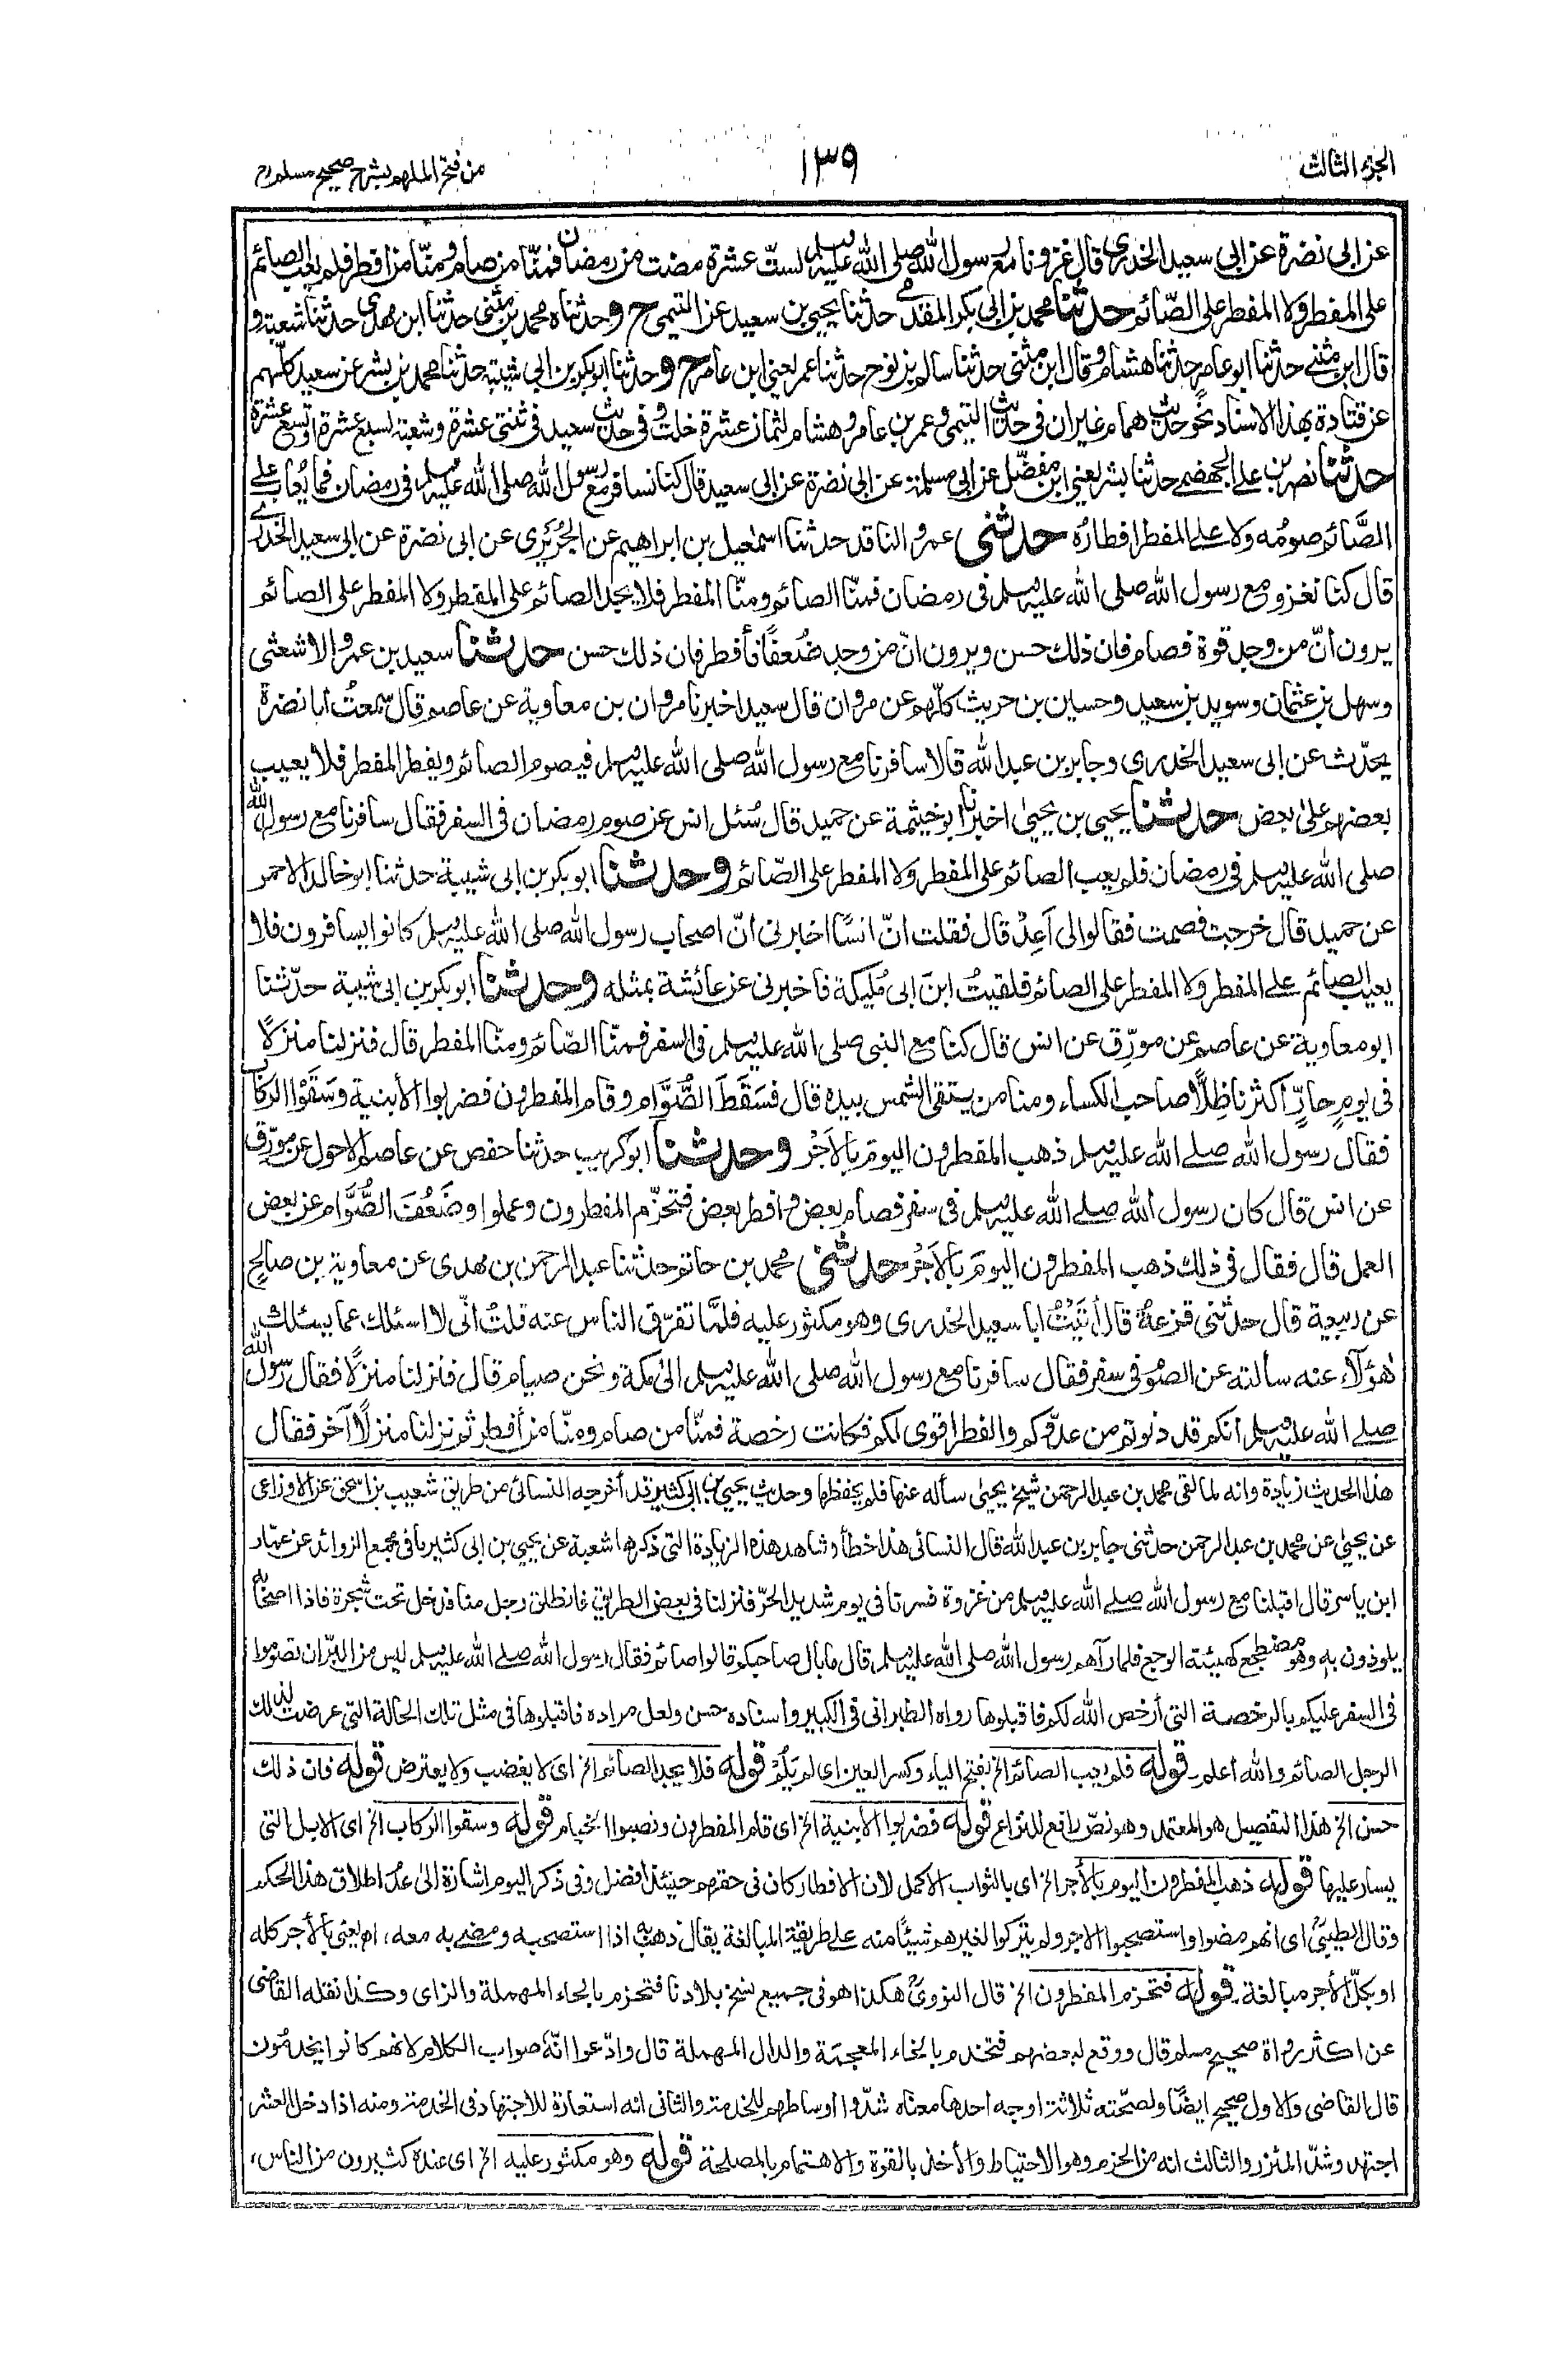 الجزء الثالث
١٣٩
من فتح الملهم بشرح صحيح مسلم
عن ابى نضرة عن ابى سعيد الخدرى قال غزونا مع رسول الله صلى الله عليه وسلم لستّ عشرة مضت من رمضان فمنّا من صام ومنّا من افطر فلم يعب الصائم
على المفطر ولا المفطر على الصّائم حدثنا محمد بن ابى بكر المقدمى حدثنا يحيى بن سعيد عن التيمى ح وحدثناه محمد بن مثنى حدثنا ابن مهدى حدثنا شعبة و
قال ابن مثنى حدثنا ابو عامر حدثنا هشام وقال ابن مثنى حدثنا سالم بن نوح حدثنا عمر يعنى ابن عامر ح وحدثنا ابوبكر بن ابى شيبة حدثنا محمد بن بشر عن سعيد كلّهم
عن قتادة بهذا الاسناد نحو حديث همام غير ان فى حديث التيمى وعمر بن عامر وهشام لثمان عشرة خلت وفى حديث سعيد فى ثنتى عشرة وشعبة لسبع عشرة او تسع عشرة
حدثنا نصر بن على الجهضمى حدثنا بشر يعنى ابن مفضّل عن ابى مسلمة عن ابى نضرة عن ابى سعيد قال كنا نسافر مع رسول الله صلى الله عليه وسلم فى رمضان فما يُعاب على
الصَّائم صومُه ولا على المفطر افطارُه حدثنى عمرو الناقد حدثنا اسمٰعيل بن ابراهيم عن الجُرَيرى عن ابى نضرة عن ابى سعيد الخدرى
قال كنا نغزو مع رسول الله صلى الله عليه وسلم فى رمضان فمنّا الصائم ومنّا المفطر فلا يجد الصائم على المفطر ولا المفطر على الصائم
يرون انّ من وجد قوة فصام فان ذلك حسن ويرون انّ من وجد ضُعفًا فأفطر فان ذلك حسن حدثنا سعيد بن عمرو الاشعثى
وسهل بن عثمان وسويد بن سعيد وحسين بن حريث كلّهم عن مروان قال سعيد اخبرنا مروان بن معاوية عن عاصم قال سمعتُ ابا نضرة
يحدّث عن ابى سعيد الخدرى وجابر بن عبد الله قالا سافرنا مع رسول الله صلى الله عليه وسلم فيصوم الصائم ويفطر المفطر فلا يعيب
بعضهم على بعض حدثنا يحيى بن يحيىٰ اخبرنا ابو خيثمة عن حميد قال سُئل انس عن صوم رمضان فى السفر فقال سافرنا مع رسول الله
صلى الله عليه وسلم فى رمضان فلم يعب الصائم على المفطر ولا المفطر على الصّائم وحدثنا ابوبكر بن ابى شيبة حدثنا ابو خالد الاحمر
عن حميد قال خرجت فصمت فقالوا لى اَعِدْ قال فقلت انّ انسًا اخبرنى انّ اصحاب رسول الله صلى الله عليه وسلم كانوا يسافرون فلا
يعيب الصائم على المفطر ولا المفطر على الصائم فلقيتُ ابنَ ابى مُليكة فاخبرنى عن عائشة بمثله وحدثنا ابوبكر بن ابى شيبة حدّثنا
ابو معاوية عن عاصم عن مورِّق عن انس قال كنا مع النبى صلى الله عليه وسلم فى السفر فمنّا الصّائم ومنّا المفطر قال فنزلنا منزلًا
فى يومٍ حارٍّ أكثرنا ظِلًّا صاحب الكساء ومنا من يتقى الشمس بيده قال فسَقَطَ الصُّوَّام وقام المفطرون فضربوا الأبنية وسَقَوُا الركاب
فقال رسول الله صلى الله عليه وسلم ذهب المفطرون اليوم بالاَجْر وحدثنا ابو كريب حدثنا حفص عن عاصم الاحول عن مورّق
عن انس قال كان رسول الله صلى الله عليه وسلم فى سفر فصام بعض وافطر بعض فتحزّم المفطرون وعملوا وضَعُفَ الصُّوَّام عن بعض
العمل قال فقال فى ذلك ذهب المفطرون اليوم بالاَجْر حدثنى محمد بن حاتم حدثنا عبد الرحمن بن مهدى عن معاوية بن صالح
عن ربيعة قال حدثنى قزعةُ قال أتيتُ ابا سعيد الخدرى وهو مكثور عليه فلمّا تفرّق الناس عنه قلتُ انّى لا اسئلك عما يسئلك
هٰؤلآء عنه سألته عن الصوم فى سفر فقال سافرنا مع رسول الله صلى الله عليه وسلم الىٰ مكة ونحن صيام قال فنزلنا منزلًا فقال رسول الله
صلى الله عليه وسلم انكم قد دنوتم من عدوّكم والفطر اقوى لكم فكانت رخصة فمنّا من صام ومنّا من أفطر ثم نزلنا منزلًا آخر فقال
هذا الحديث زيادة وانه لما لقى محمد بن عبد الرحمن شيخ يحيىٰ سأله عنها فلم يحفظها وحديث يحيى بن ابى كثير قد أخرجه النسائى من طريق شعيب بن اسحق عن الاوزاعى
عن يحيىٰ عن محمد بن عبد الرحمن حدثنى جابر بن عبد الله قال النسائى هذا خطأ وشاهد هذه الزيادة التى ذكرها شعبة عن يحيى بن ابى كثير ما فى مجمع الزوائد عن عمّار
ابن ياسر قال اقبلنا مع رسول الله صلى الله عليه وسلم من غزوة فسرنا فى يوم شديد الحرّ فنزلنا فى بعض الطريق فانطلق رجل منا فدخل تحت شجرة فاذا اصحابه
يلوذون به وهو مضطجع كهيئة الوجع فلما رآهم رسول الله صلى الله عليه وسلم قال ما بال صاحبكم قالوا صائم فقال رسول الله صلى الله عليه وسلم ليس من البرّ ان تصوموا
فى السفر عليكم بالرخصة التى أرخص الله لكم فاقبلوها رواه الطبرانى فى الكبير واسناده حسن ولعل مراده فاقبلوها فى مثل تلك الحالة التى عرضت لذلك
الرجل الصائم والله أعلم۔ قوله فلم يعب الصائم الخ بفتح الياء وكسر العين اى لم يَلُمْ قوله فلا يجد الصائم الخ اى لا يغضب ولا يعترض قوله فان ذلك
حسن الخ هذا التفصيل هو المعتمد وهو نصّ رافع للنزاع قوله فضربوا الأبنية الخ اى قام المفطرون ونصبوا الخيام قوله وسقوا الركاب الخ اى الابل التى
يسار عليها قوله ذهب المفطرون اليوم بالأجر الخ اى بالثواب الاكمل لان الافطار كان فى حقهم حينئذ افضل وفى ذكر اليوم اشارة الىٰ عدم اطلاق هذا الحكم
وقال الطيبىؒ اى انهم مضوا واستصحبوا الاجر ولم يتركوا لغيرهم شيئًا منه على طريقة المبالغة يقال ذهب به اذا استصحبه ومضى به معه، اھ يعنى بالأجر كله
او بكلّ الأجر مبالغة۔ قوله فتحزم المفطرون الخ قال النووىؒ هكذا هو فى جميع نسخ بلادنا فتحزم بالحاء المهملة والزاى وكذا نقله القاضى
عن اكثر رواة صحيح مسلم قال ووقع لبعضهم فتخدم بالخاء المعجمة والدال المهملة قال وادّعوا انّه صواب الكلام لانهم كانوا يخدمُون
قال القاضى والاول صحيح ايضًا ولصحّته ثلاثة اوجه احدها معناه شدّوا اوساطهم للخدمة والثانى انه استعارة للاجتهاد فى الخدمة ومنه اذا دخل العشر
اجتهد وشدّ المئزر والثالث انه من الحزم وهو الاحتياط والأخذ بالقوة والاهتمام بالمصلحة قوله وهو مكثور عليه الخ اى عنده كثيرون من الناس،